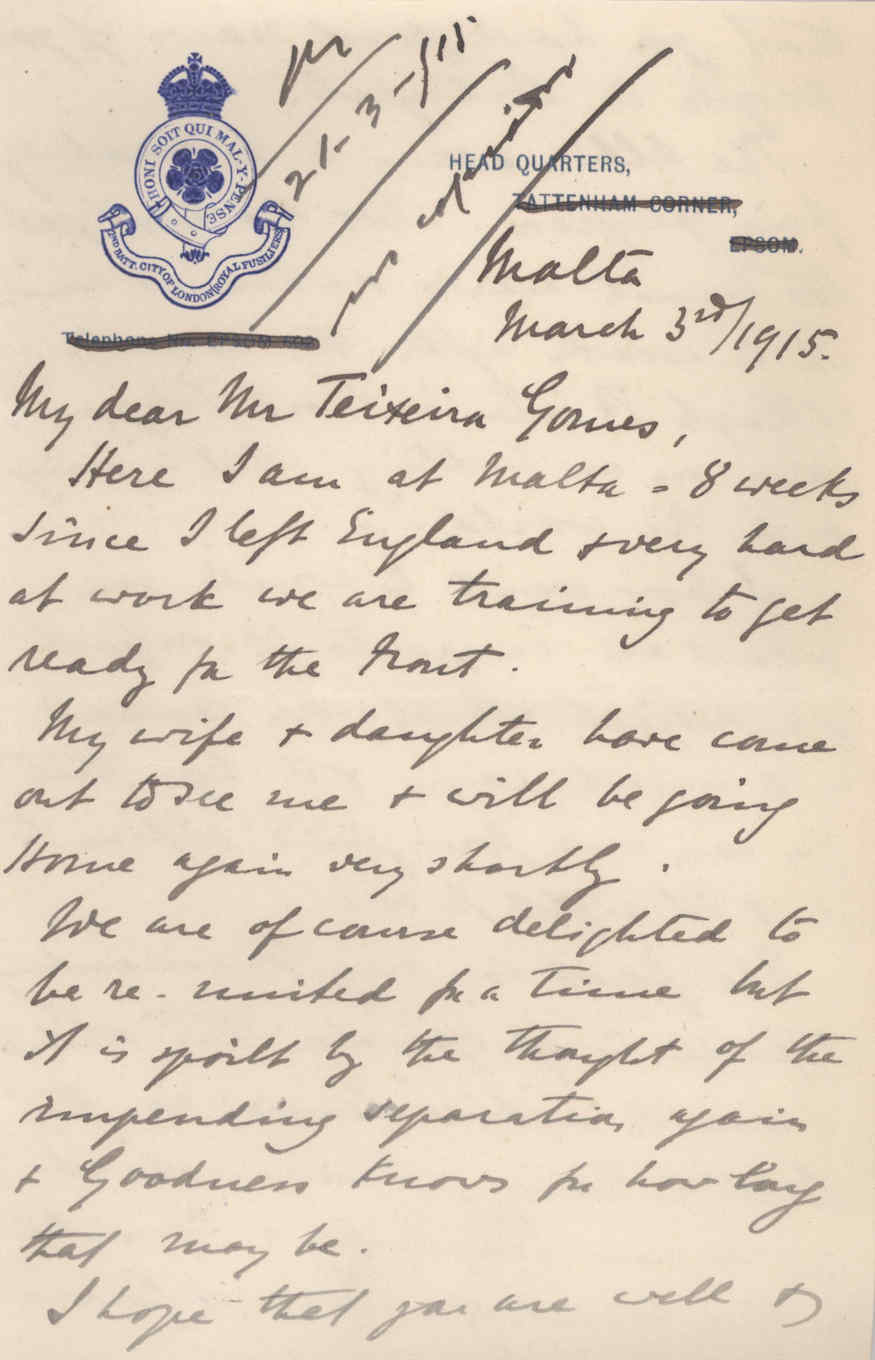 HONI SOIT QUI MAL-Y-PENSE
2ND BATT. CITY OF LONDON (ROYAL FUSILIERS)
21-3-915
HEAD QUARTERS,
TATTENHAM CORNER,
EPSOM.
Telephone No. EPSOM
Malta
March 3rd/1915.
My dear Mr Teixeira Gomes,
Here I am at Malta - 8 weeks
since I left England & very hard
at work we are training to get
ready for the Front.
My wife & daughter have come
out to see me & will be going
Home again very shortly.
We are of course delighted to
be re-united for a time but
it is spoilt by the thought of the
impending separation again
& Goodness knows for how long
that may be.
I hope that you are well &